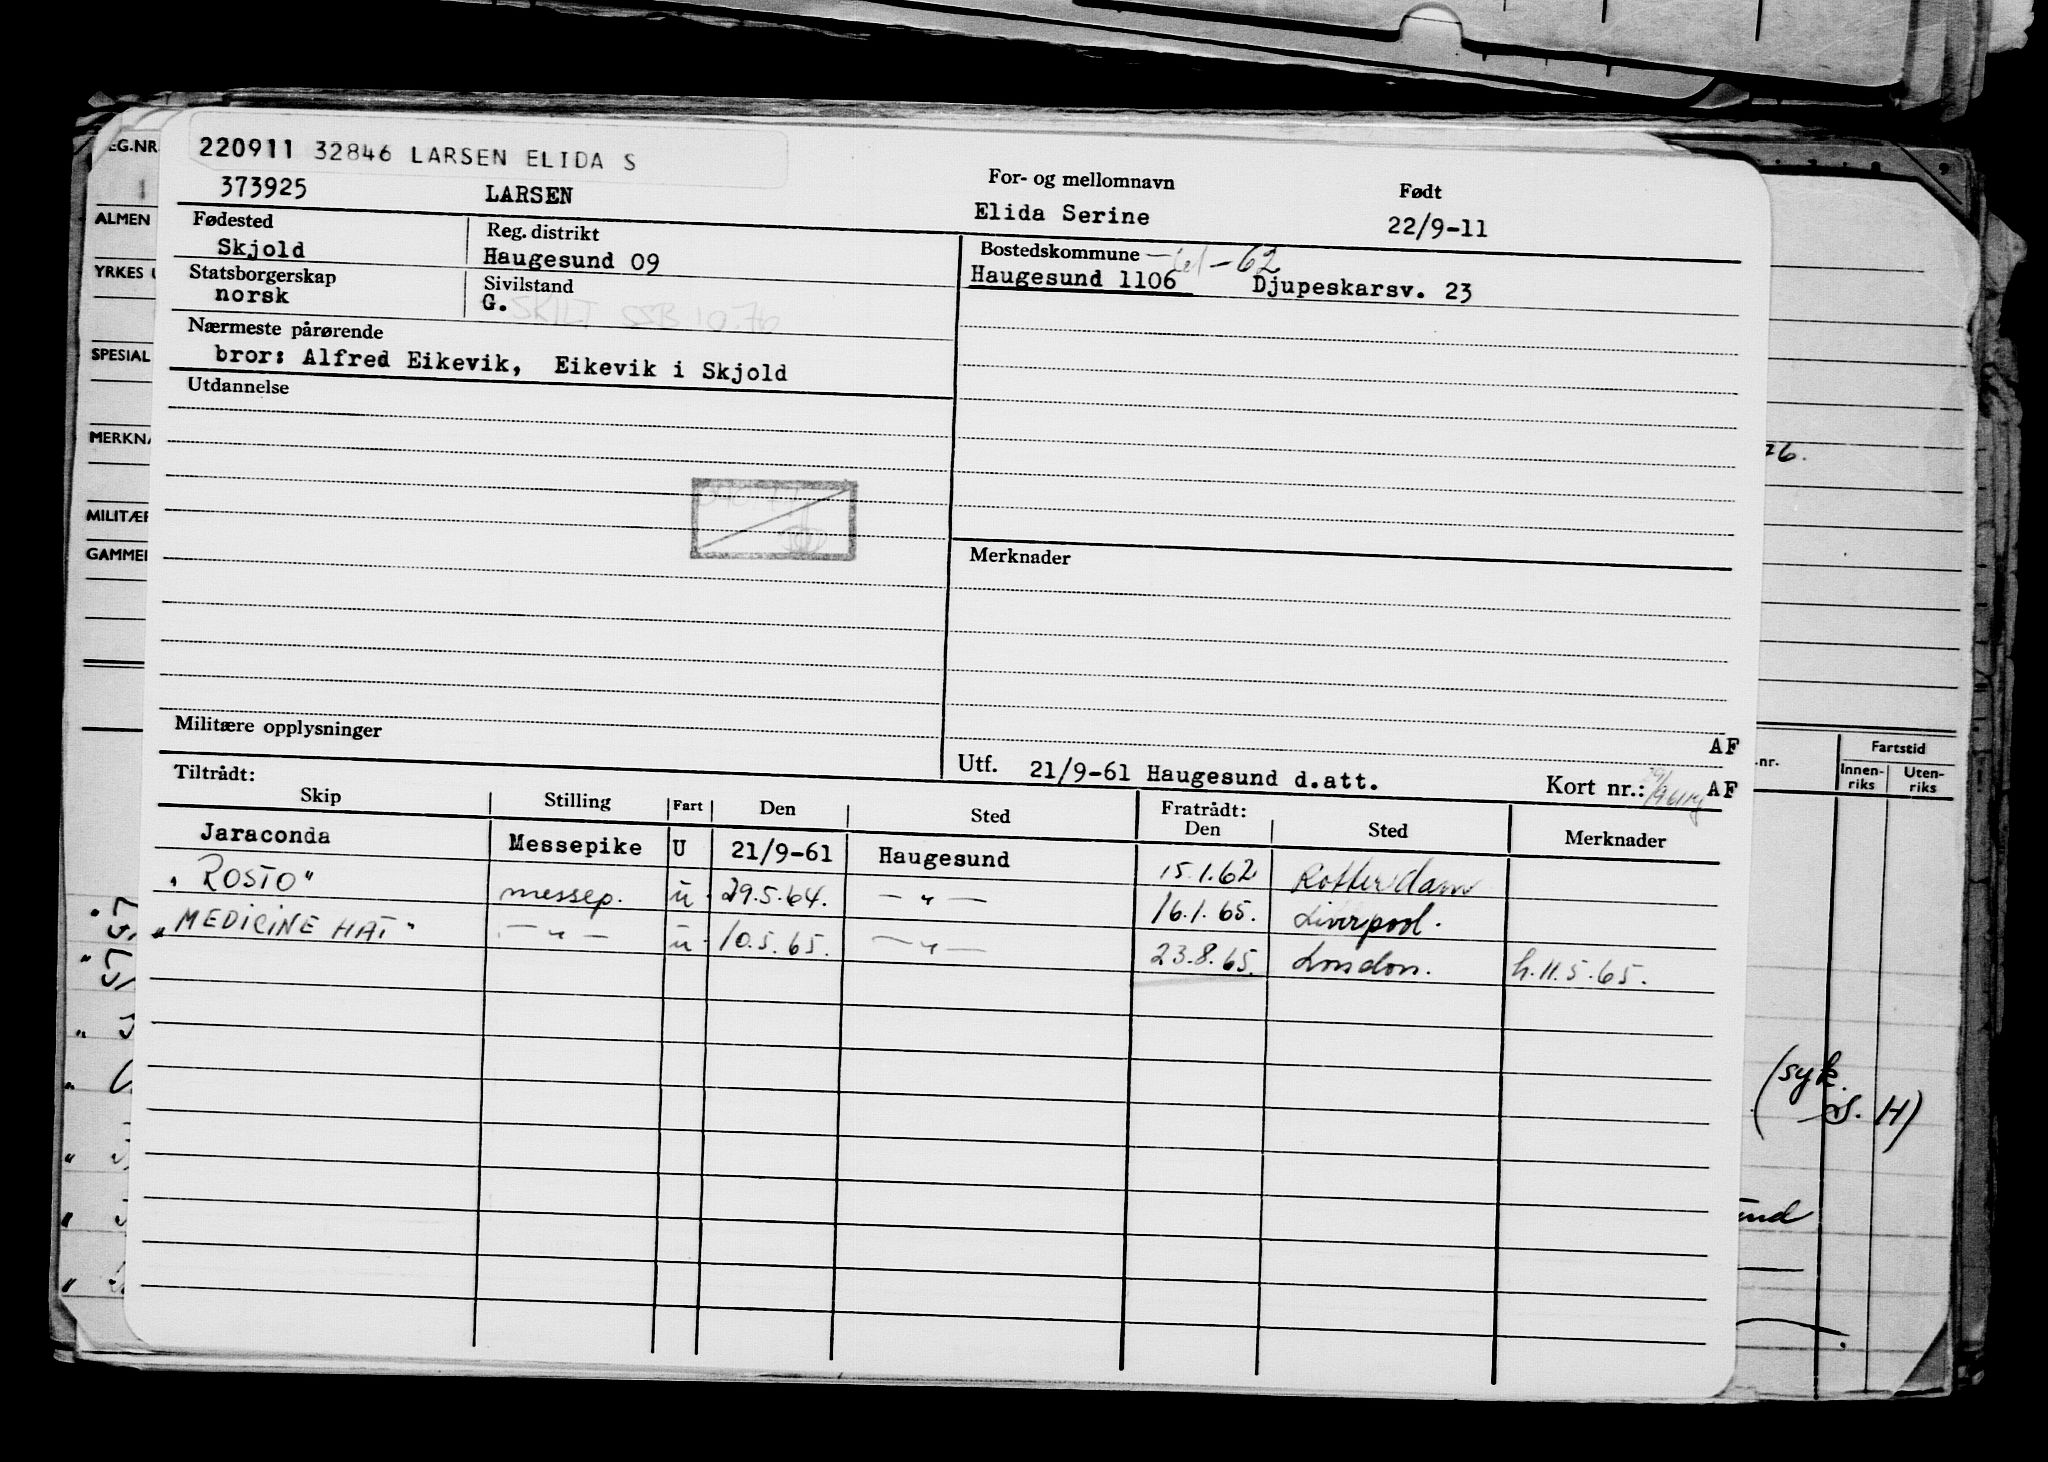 220911 32846 LARSEN ELIDA S
373925 LARSEN
For- og mellomnavn Født
Elida Serine 22/9-11
Fødested Reg. distrikt Bostedskommune -61-62
Skjold Haugesund 09 Haugesund 1106 Djupeskarsv. 23
Statsborgerskap Sivilstand
norsk G. SKILT SSB 10.76
Nærmeste pårørende
bror: Alfred Eikevik, Eikevik i Skjold
Utdannelse
Merknader
Militære opplysninger
AF
Utf. 21/9-61 Haugesund d.att. Kort nr.: AF
Tiltrådt: Fratrådt:
Skip Stilling Fart Den Sted Den Sted Merknader
Jaraconda Messepike U 21/9-61 Haugesund 15.1.62 Rotterdam
"ROSTO" messep. u 29.5.64. — " — 16.1.65. Liverpool.
"MEDICINE HAT" — " — u 10.5.65. — " — 23.8.65. London. h.11.5.65.
EG.NR.
ALMEN
YRKES U
SPESIAL
MERKNA
MILITÆR
GAMMEL
76.
.nr. Fartstid
Innen-riks Uten-riks
(syk.
S. H)
und